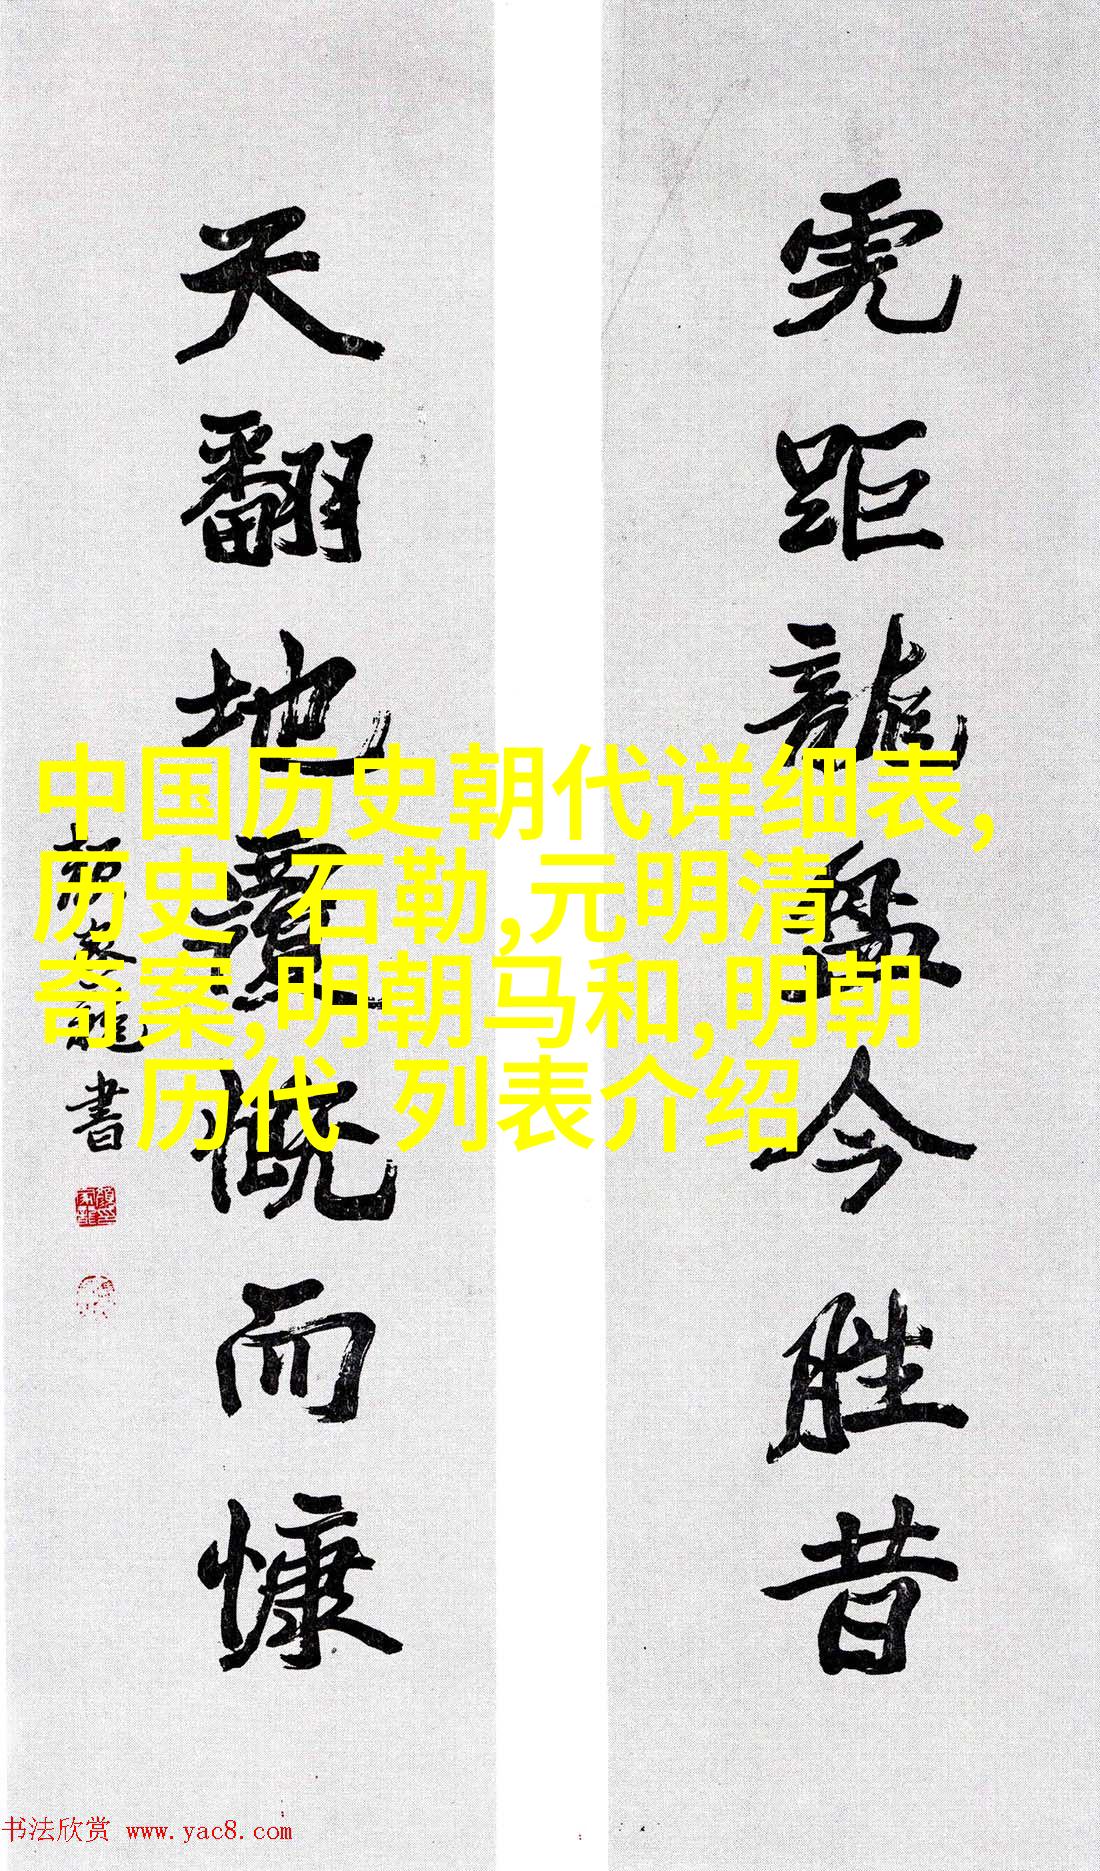 虎距龍盤今胜昔
天翻地覆慨而慷
書
中国历史朝代详细表,
历史 石勒,元明清
奇案,明朝马和,明朝
历代 列表介绍
书法欣赏 www.yac8.com